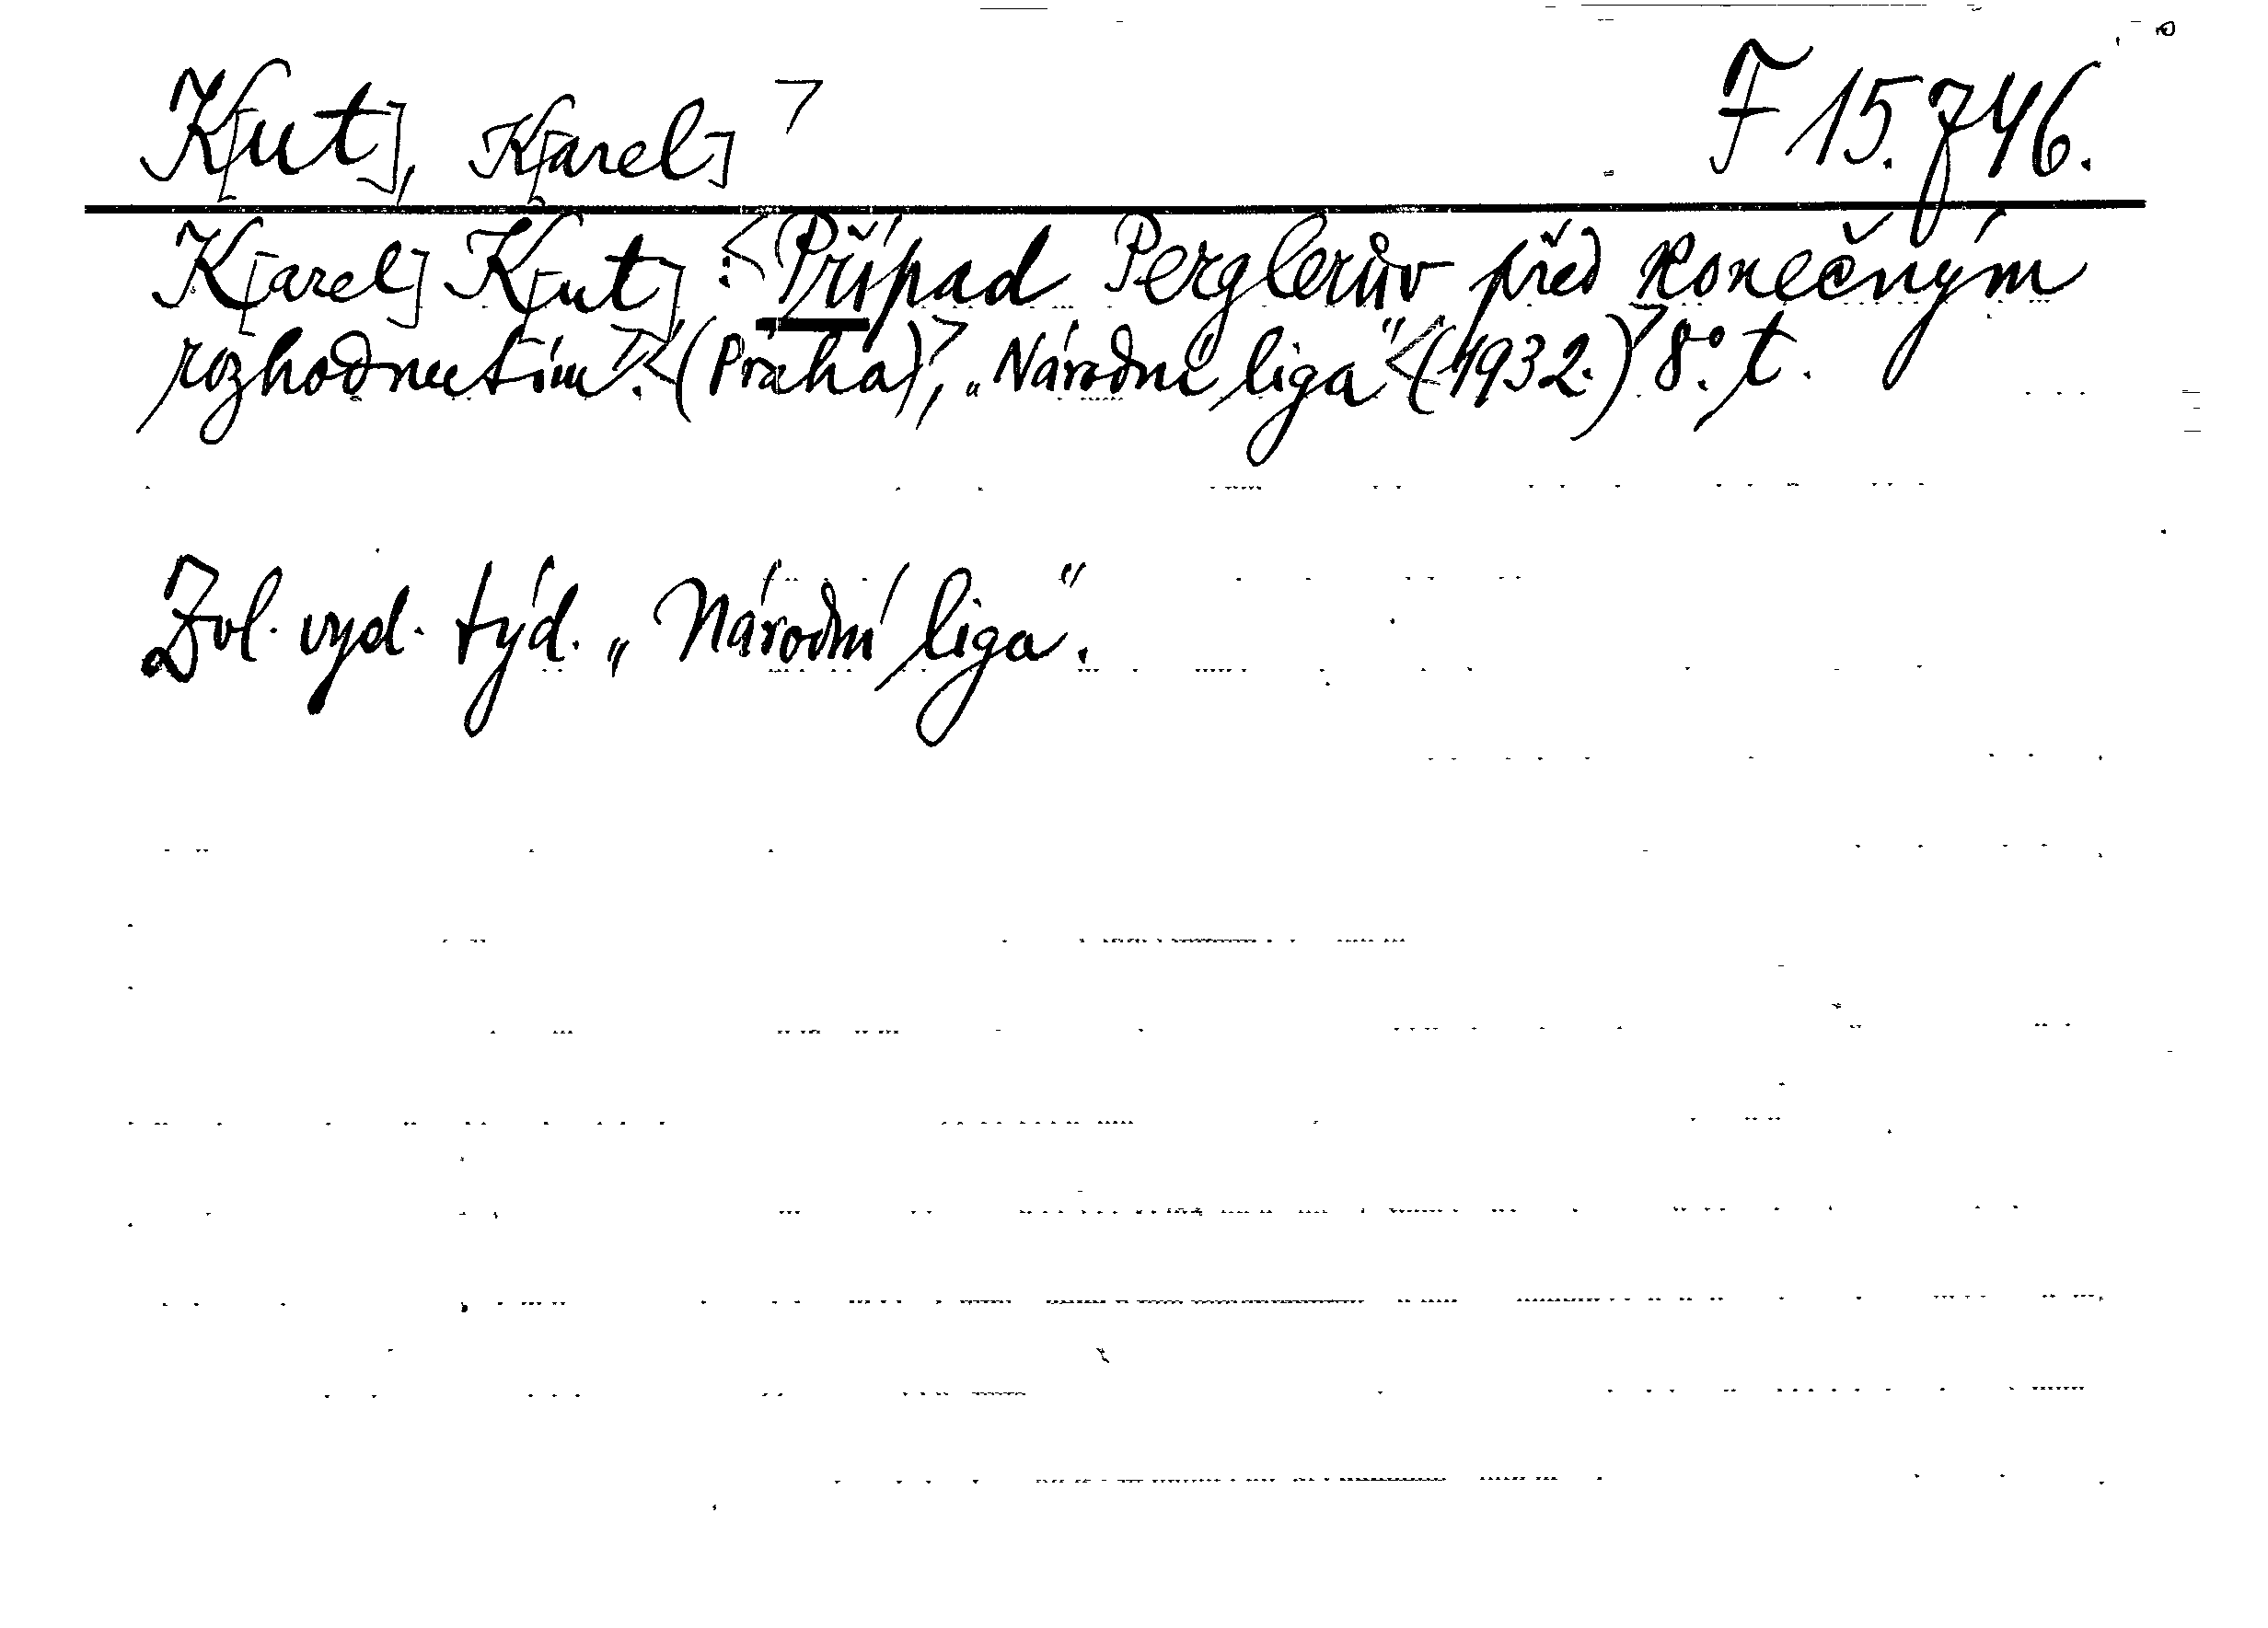 K[ut], K[arel] F 15.746.
K[arel] K[ut]: Případ Perglerův před konečným
rozhodnutím. (Praha), „Národní liga“ (1932.) 8°. t.
Zvl. vyd. týd. „Národní liga“.